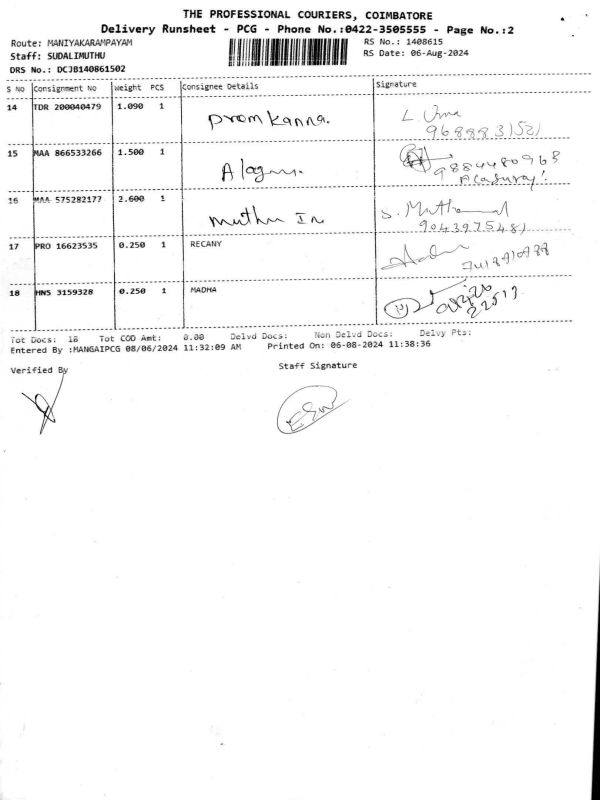 THE PROFESSIONAL COURIERS, COIMBATORE
Delivery Runsheet - PCG - Phone No.:0422-3505555 - Page No.:2
Route: MANIYAKARAMPAYAM
RS No.: 1408615
Staff: SUDALIMUTHU
RS Date: 06-Aug-2024
DRS No.: DCJB140861502
S No Consignment No Weight PCS Consignee Details Signature
14 TDR 200040479 1.090 1 Prom Kanna. L. Uma
9688831521
15 MAA 866533266 1.500 1 Alagu 9884480963
16 MAA 575282177 2.600 1 Muthu In S. Muthammal
9043975481
17 PRO 16623535 0.250 1 RECANY
18 HNS 3159328 0.250 1 MADHA
22513
Tot Docs: 18 Tot COD Amt: 0.00 Delvd Docs: Non Delvd Docs: Delvy Pts:
Entered By :MANGAIPCG 08/06/2024 11:32:09 AM Printed On: 06-08-2024 11:38:36
Verified By Staff Signature